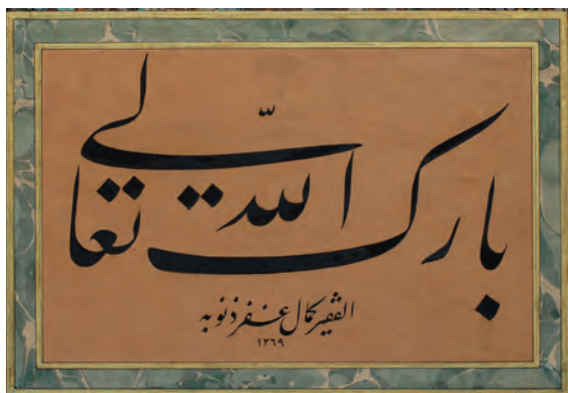 بارك الله تعالي
الفقير كمال غفر ذنوبه
١٢٦٩